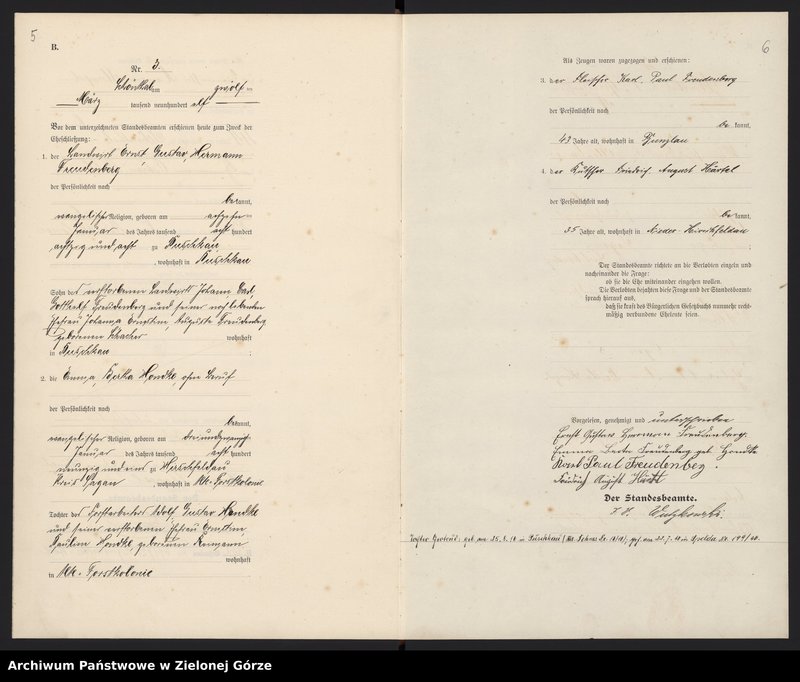 5
B.
Nr. 3.
Schönthal am zwölften
März tausend neunhundert elf
Vor dem unterzeichneten Standesbeamten erschienen heute zum Zweck der
Eheschließung:
1. der Landwirt Ernst, Gustav, Hermann
Freudenberg
der Persönlichkeit nach
bekannt,
evangelischer Religion, geboren am
Januar des Jahres tausend acht hundert
achtzig und acht zu
, wohnhaft in
Sohn des verstorbenen Landwirts Johann Carl
Gotthelf Freudenberg und seiner noch lebenden
Ehefrau Johanna Ernestine, Auguste Freudenberg
geborenen wohnhaft
in
2. die Emma, Berta Hendke, ohne Beruf
der Persönlichkeit nach
bekannt,
evangelischer Religion, geboren am dreiundzwanzig
Januar des Jahres tausend acht hundert
neunzig und zu Hirschfeldau
Kreis Sagan , wohnhaft in
Tochter des Forstarbeiters Adolf, Gustav Hendke
und seiner verstorbenen Ehefrau Ernestine
Pauline Hendke geborenen Reimann
wohnhaft
in Forstkolonie
6
Als Zeugen waren zugezogen und erschienen:
3. der Fleischer Karl, Paul Freudenberg
der Persönlichkeit nach
bekannt,
43 Jahre alt, wohnhaft in Bunzlau
4. der Kutscher Friedrich August Härtel
der Persönlichkeit nach
bekannt,
35 Jahre alt, wohnhaft in Nieder-Hirschfeldau
Der Standesbeamte richtete an die Verlobten einzeln und
nacheinander die Frage:
ob sie die Ehe miteinander eingehen wollen.
Die Verlobten bejahten diese Frage und der Standesbeamte
sprach hierauf aus,
daß sie kraft des Bürgerlichen Gesetzbuchs nunmehr recht-
mäßig verbundene Eheleute seien.
Vorgelesen, genehmigt und unterschrieben
Ernst Gustav Hermann Freudenberg.
Emma Berta Freudenberg geb. Hendke
Karl Paul Freudenberg.
Friedrich August Härtel
Der Standesbeamte.
Tochter Gertrud: geb. am
Archiwum Państwowe w Zielonej Górze